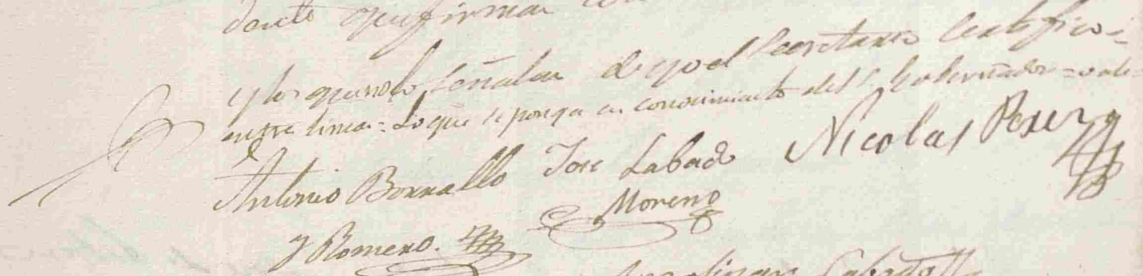 dente que firman con
y los que no lo señalan de que el Secretario Certifico =
entre lineas = Lo que se ponga en conocimiento del Sr Gobernador = vale
Antonio Borrallo Jose Labado Nicolas Perez
y Romero. Moreno
Labado